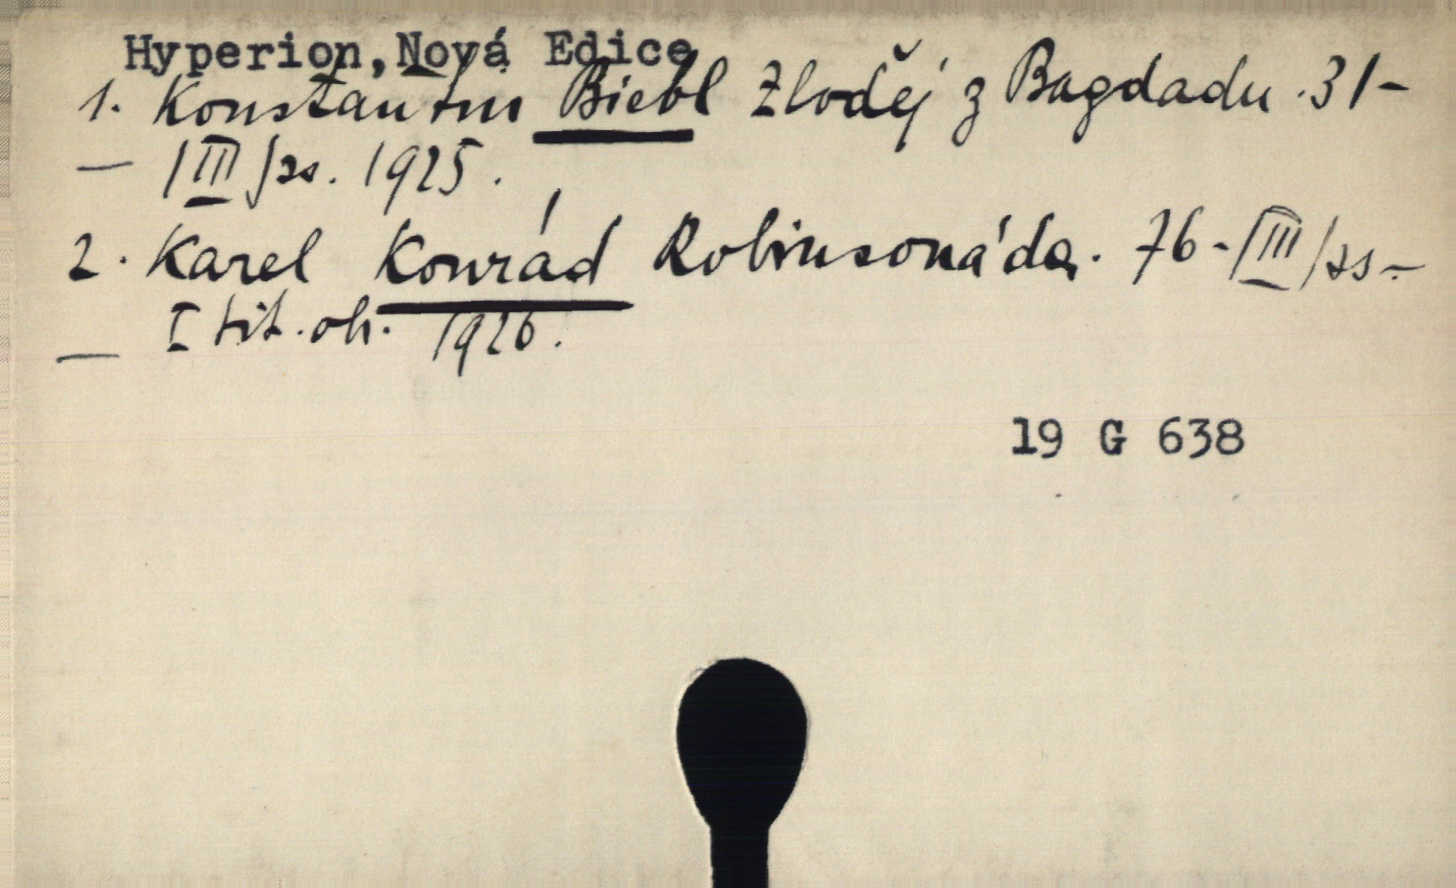 Hyperion, Nová Edice
1. Konstantin Biebl Zloděj z Bagdadu. 31-
— /III/ss. 1925.
2. Karel Konrád Robinsonáda. 76-/III/ss-
— I tit. ob. 1926.
19 G 638